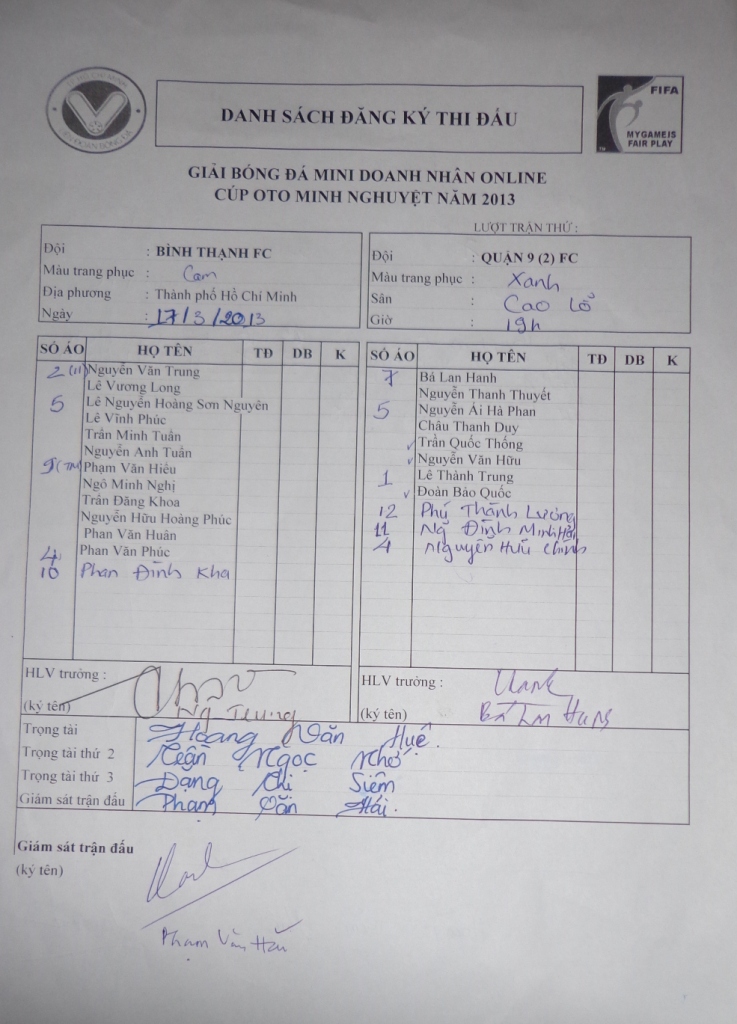 DANH SÁCH ĐĂNG KÝ THI ĐẤU
FIFA
MY GAME IS
FAIR PLAY
GIẢI BÓNG ĐÁ MINI DOANH NHÂN ONLINE
CÚP OTO MINH NGHUYỆT NĂM 2013
LƯỢT TRẬN THỨ :
Đội : BÌNH THẠNH FC
Màu trang phục : Cam
Địa phương : Thành phố Hồ Chí Minh
Ngày : 17/3/2013
Đội : QUẬN 9 (2) FC
Màu trang phục : Xanh
Sân : Cao Lỗ
Giờ : 19h
SỐ ÁO HỌ TÊN TĐ DB K
2 (11) Nguyễn Văn Trung
Lê Vương Long
5 Lê Nguyễn Hoàng Sơn Nguyên
Lê Vĩnh Phúc
Trần Minh Tuấn
Nguyễn Anh Tuấn
9 Phạm Văn Hiếu
Ngô Minh Nghị
Trần Đăng Khoa
Nguyễn Hữu Hoàng Phúc
Phan Văn Huân
4 Phan Văn Phúc
10 Phan Đình Kha
SỐ ÁO HỌ TÊN TĐ DB K
7 Bá Lan Hanh
Nguyễn Thanh Thuyết
5 Nguyễn Ái Hà Phan
Châu Thanh Duy
✓ Trần Quốc Thống
✓ Nguyễn Văn Hữu
1 Lê Thành Trung
✓ Đoàn Bảo Quốc
12 Phú Thành Lương
11 Ng Đình Minh Hải
4 Nguyễn Hữu Chính
HLV trưởng :
(ký tên) Ng Trung
HLV trưởng : Hanh
(ký tên) Bá Lan Hanh
Trọng tài Hoàng Văn Huệ.
Trọng tài thứ 2 Trần Ngọc Nhớ
Trọng tài thứ 3 Đặng Chi Siêm
Giám sát trận đấu Phạm Văn Hải.
Giám sát trận đấu
(ký tên)
Phạm Văn Hải